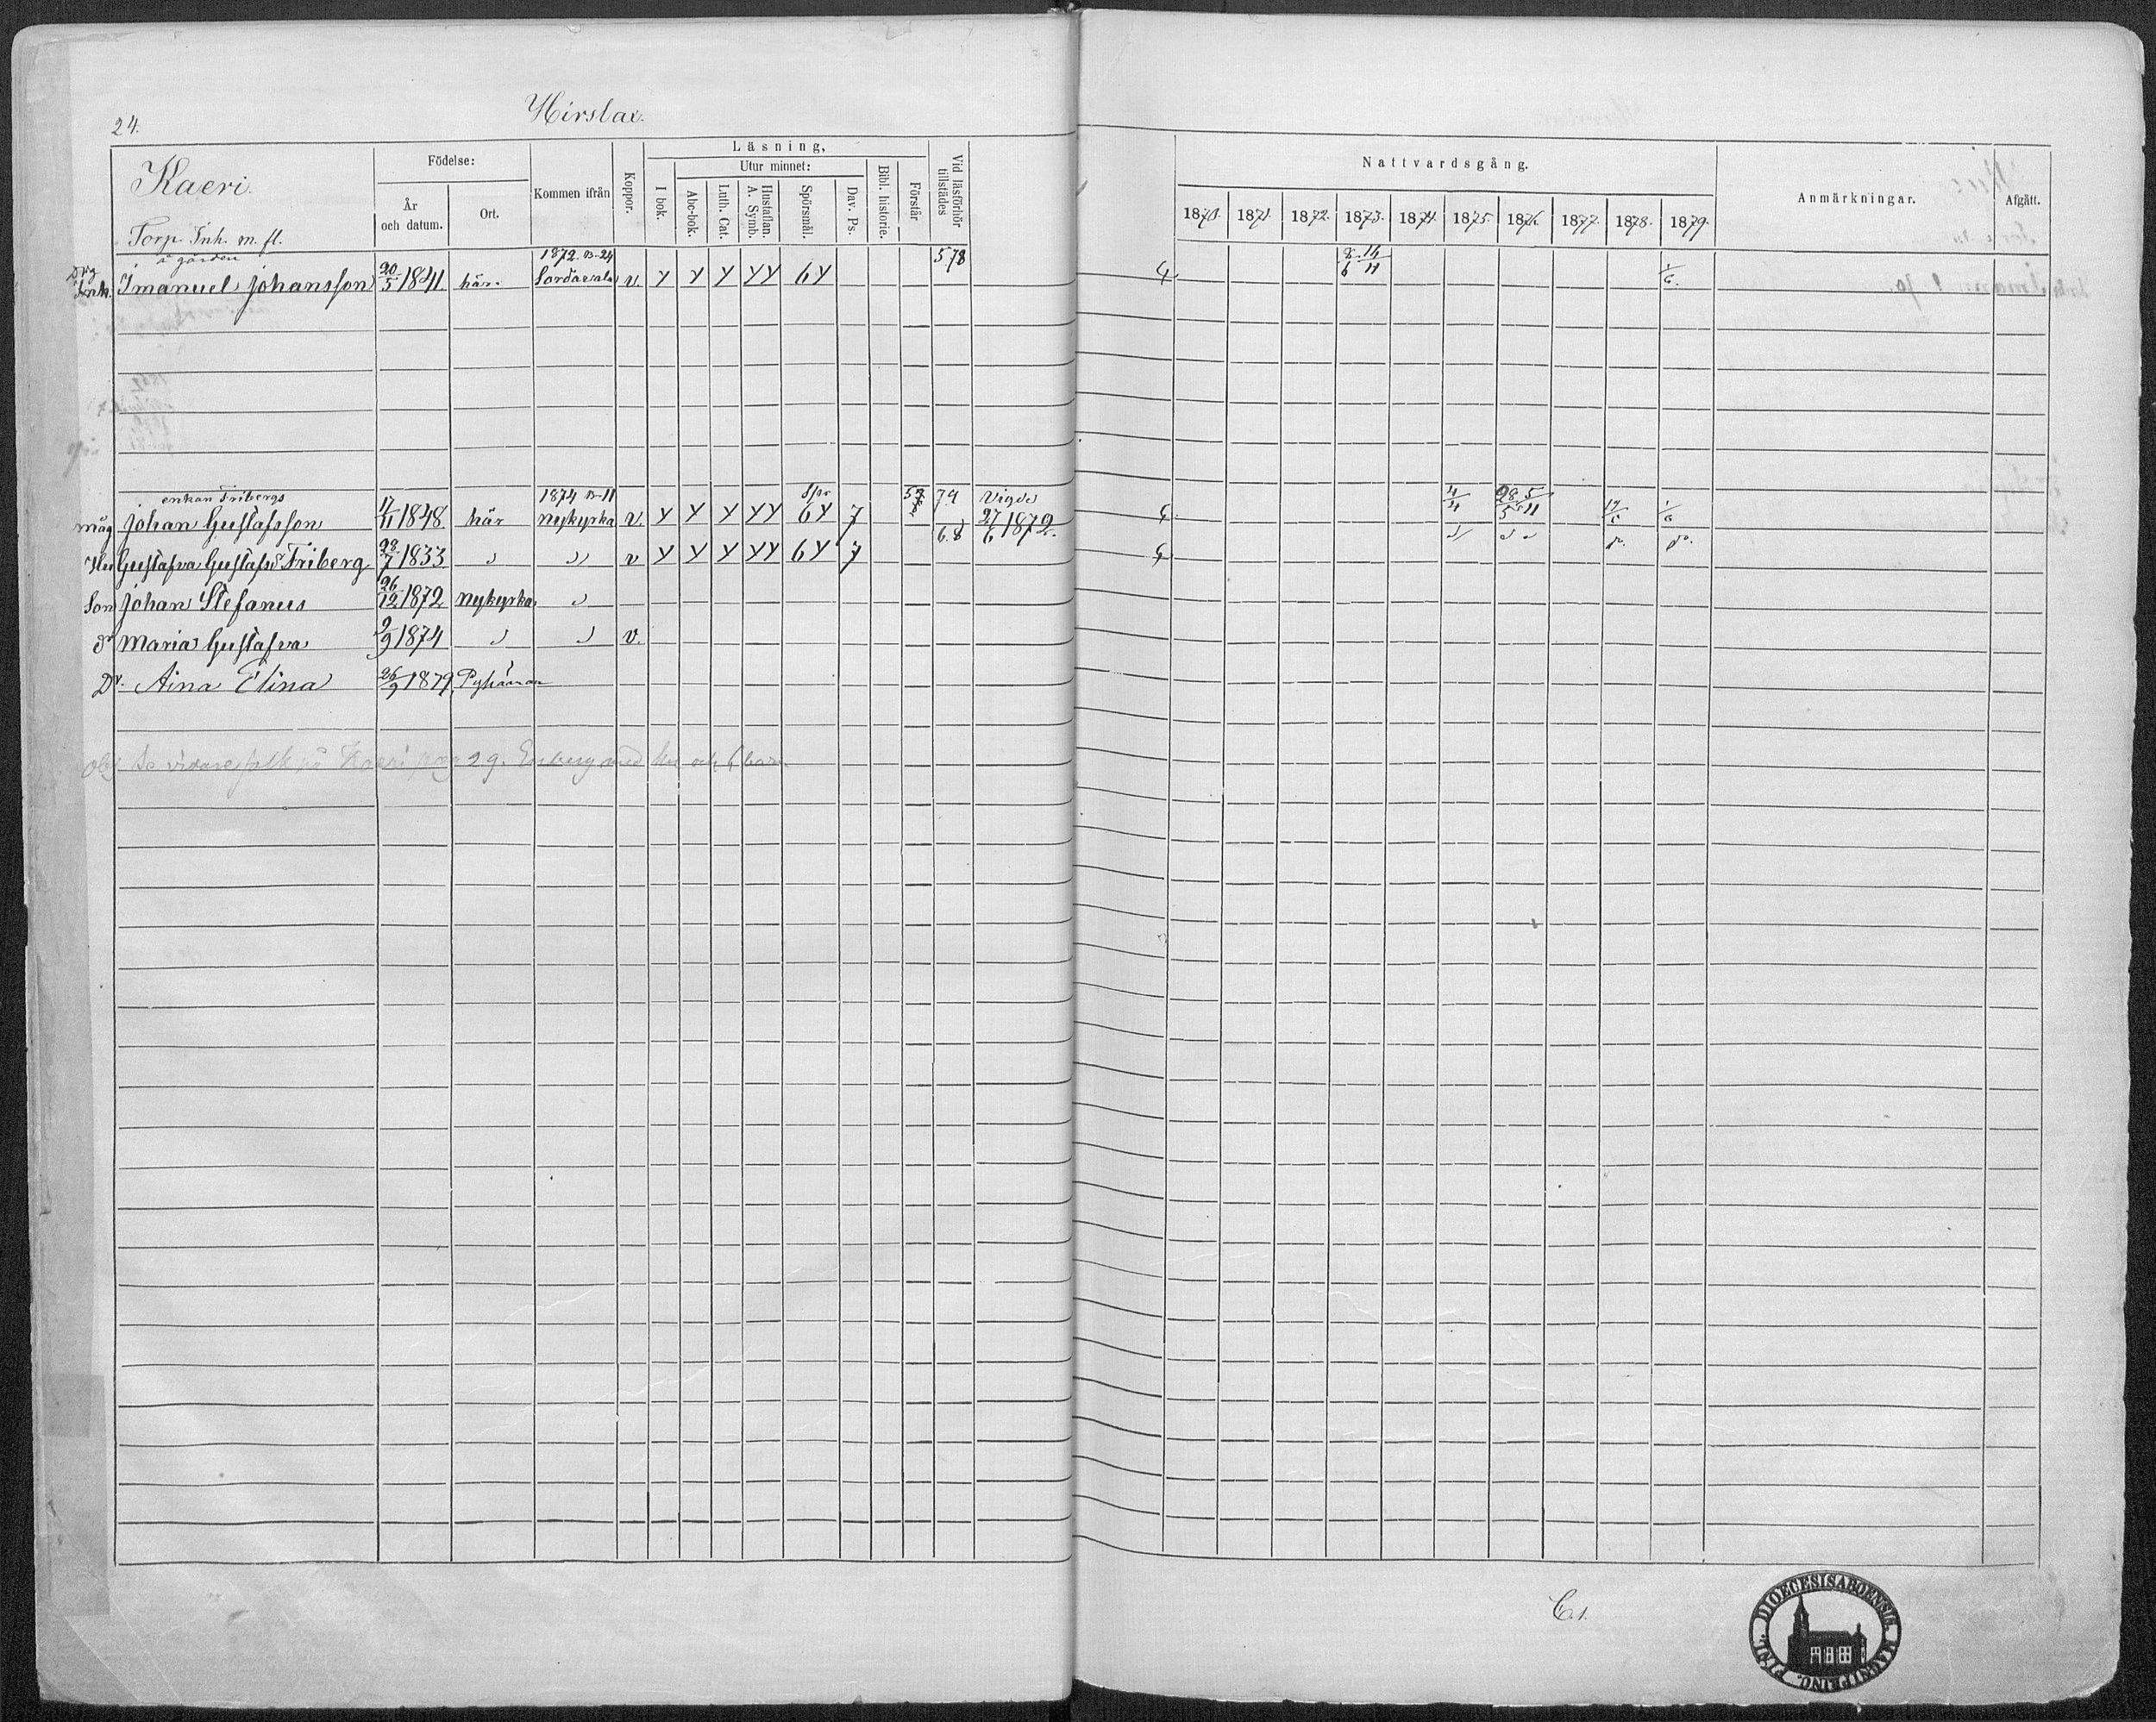 24.
Hirslax.
Kaeri.
Torp. Inh. m. fl.
Födelse:
År och datum.
Ort.
Kommen ifrån
Koppor.
Läsning,
I bok.
Utur minnet:
Abc-bok.
Luth. Cat.
Hustaflan. A. Symb.
Spörsmål.
Dav. Ps.
Bibl. historie.
Förstår
Vid läsförhör tillstädes
Nattvardsgång.
1870. 1871. 1872. 1873. 1874. 1875. 1876. 1877. 1878. 1879.
Anmärkningar.
Afgått.
å gården 1872. B-24 578 8/6 16/11
Inh. Imanuel Johansson 20/5 1841 här. Sordavala v. Y Y Y YY 6Y 1/6.
enkan Fribergs 1874 B-11 79 Vigde 4/4 28/5 5/11
måg Johan Gustafsson 17/11 1848 här Nykyrka v. Y Y Y YY 6Y 7 27/6 1872. 1/6
6.8
Hu Gustafva Gustafsdr Friberg 28/7 1833 " " v Y Y Y YY 6Y 7
Son Johan Stefanus 26/12 1872 Nykyrka "
dr Maria Gustafva 2/9 1874 " " v.
Dr. Aina Elina 26/9 1879 Pyhämaa
Obs se vidare folk på Kaeri pag 29. Enberg med hu och 6 barn.
C.1.
DIOECESIS ABOENSIS MAGNI PRINC. FINL.